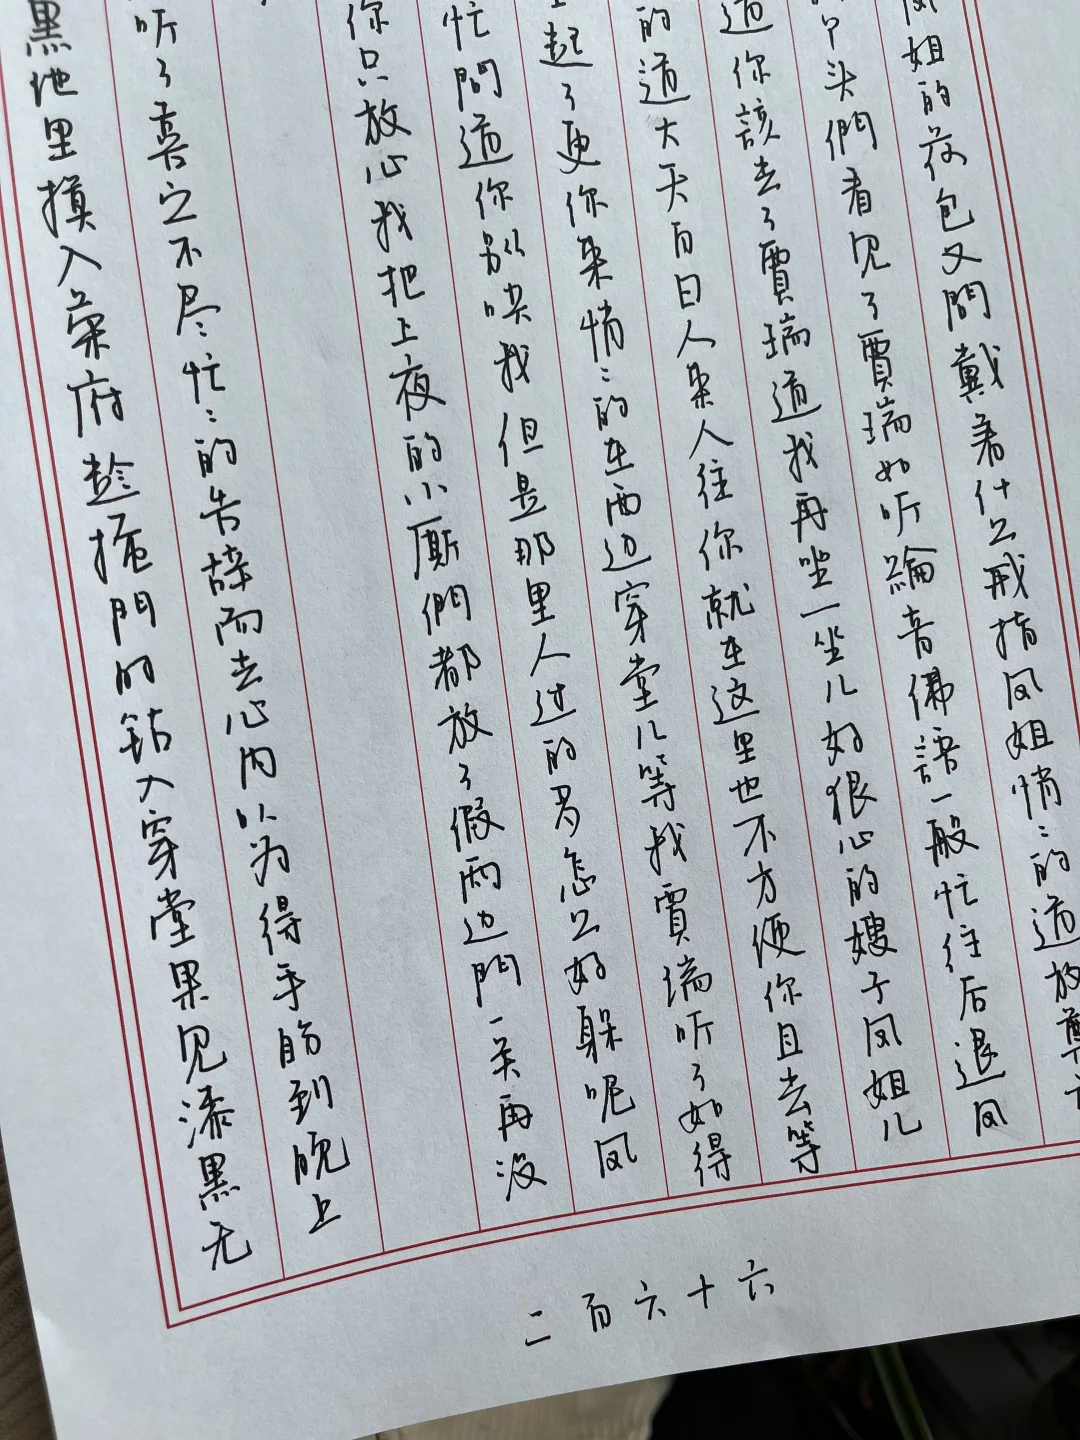 凤姐的荷包又問戴着什么戒指凤姐悄〻的道放尊
头們看见了賈瑞如听綸音佛語一般忙往后退凤
道你該去了賈瑞道我再坐一坐儿好狠心的嫂子凤姐儿
的道大天百日人来人往你就在这里也不方便你且去等
起了更你来悄〻的在西边穿堂儿等我賈瑞听了如得
忙問道你别哄我但是那里人过的多怎么好躲呢凤
你只放心我把上夜的小厮們都放了假两边門一关再没
听了喜之不尽忙〻的告辞而去心内以为得手盼到晚上
黑地里摸入荣府趁掩門时鈷入穿堂果见漆黑无
二百六十六